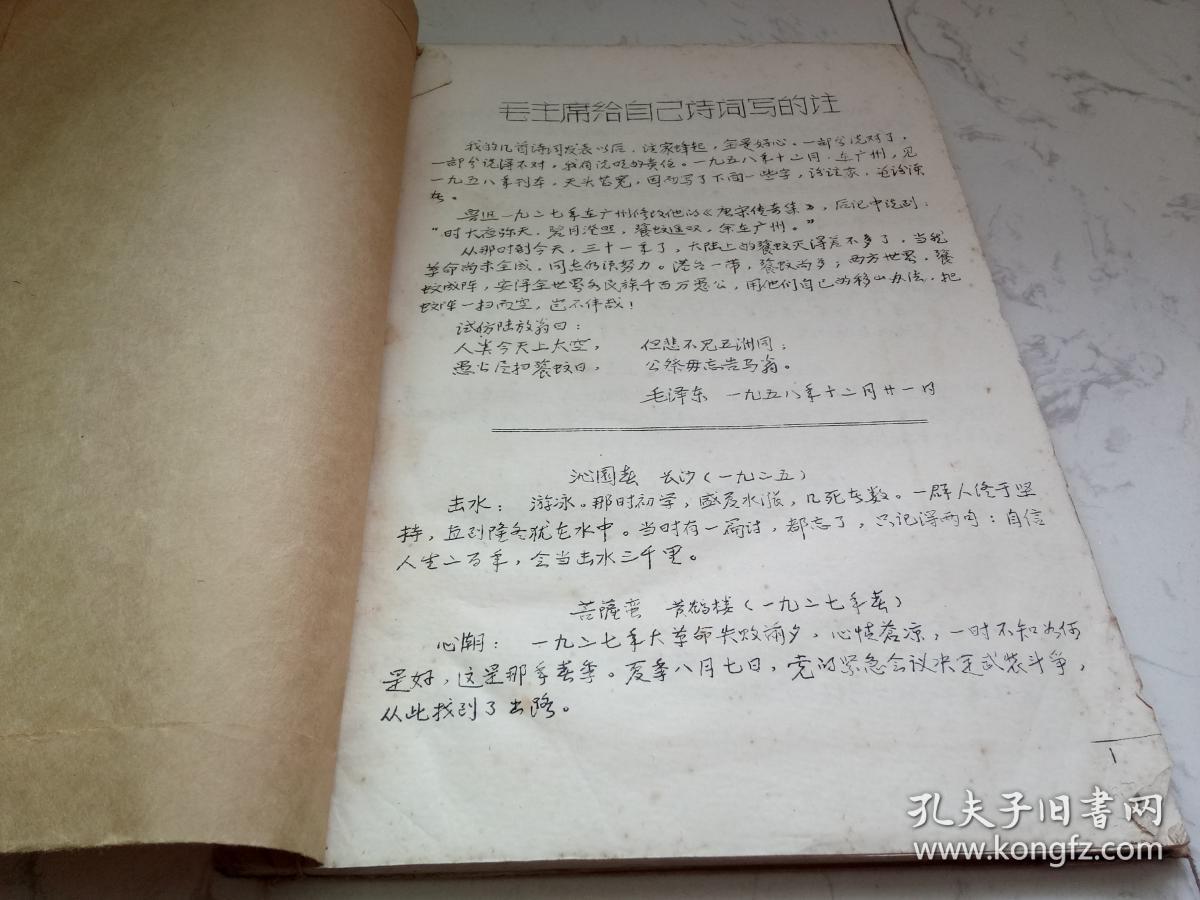 毛主席给自己诗词写的注
我的几首诗词发表以后,注家蜂起,全是好心。一部分说对了,
一部分说得不对,我有说明的责任。一九五八年十二月,在广州,见
一九五八年刊本,天头甚宽,因而写了下面一些字,谢注家,兼谢读
者。
鲁迅一九二七年在广州修改他的《唐宋传奇集》,后记中说到:
“时大夜弥天,碧月澄照,饕蚊遥叹,余在广州。”
从那时到今天,三十一年了,大陆上的饕蚊灭得差不多了,当然
革命尚未全成,同志仍须努力。港台一带,饕蚊尚多;西方世界,饕
蚊成阵,安得全世界各民族千百万愚公,用他们自己的移山办法,把
蚊阵一扫而空,岂不伟哉!
试仿陆放翁曰:
人类今天上太空, 但悲不见五洲同;
愚公尽扫饕蚊日, 公祭毋忘告马翁。
毛泽东 一九五八年十二月廿一日
沁园春 长沙(一九二五)
击水: 游泳。那时初学,盛夏水涨,几死者数。一群人终于坚
持,直到隆冬犹在水中。当时有一篇诗,都忘了,只记得两句:自信
人生二百年,会当击水三千里。
菩萨蛮 黄鹤楼(一九二七年春)
心潮: 一九二七年大革命失败前夕,心情苍凉,一时不知如何
是好,这是那年春季。夏季八月七日,党的紧急会议决定武装斗争,
从此找到了出路。
1
孔夫子旧书网
www.kongfz.com